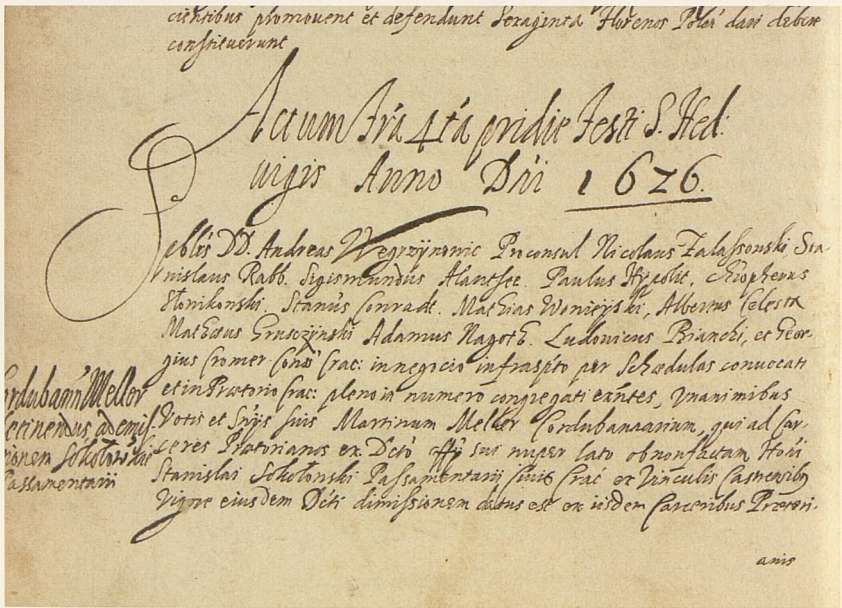 cientibus promovent et defendunt Sexaginta Florenos Polon dari debere
constituerunt
Actum fria 4ta pridie Festi S. Hed:
uigis Anno Dni 1626.
DD. Andreas Węgrzynowic Proconsul Nicolaus Zalassowski Sta-
nislaus Rabb. Sigismundus Alantsee. Paulus Hypolit,
Słonikowski. Stanis Conradt. Mathias Wonieyski, Albertus Celesta
Mathaeus Grusczynski Adamus Nagoth. Ludovicus Bianchi, et Geor-
gius Cromer Crac: in negocio infrascripto per Schaedulas convocati
et in Praetorio Crac: pleno in numero congregati Vnanimibus
Votis et suis Martinum Meller Cordubanarium, qui ad Car-
ceres Praetorianos ex Dcto sui nuper lato ob non factam
Stanislai Sokołowski Passamentarij Ciuis Crac ex Vinculis
Vigne eiusdem Dcti dimissionem datus est ex iisdem Carceribus Praetori-
anis
Meller
ad emis-
sionem Sokołowski
Passamentarii